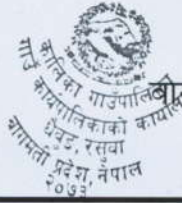 कालिका गाउँपालिका
गाउँ कार्यपालिकाको कार्यालय
धैवुङ, रसुवा
बागमती प्रदेश, नेपाल
२०७३
बो